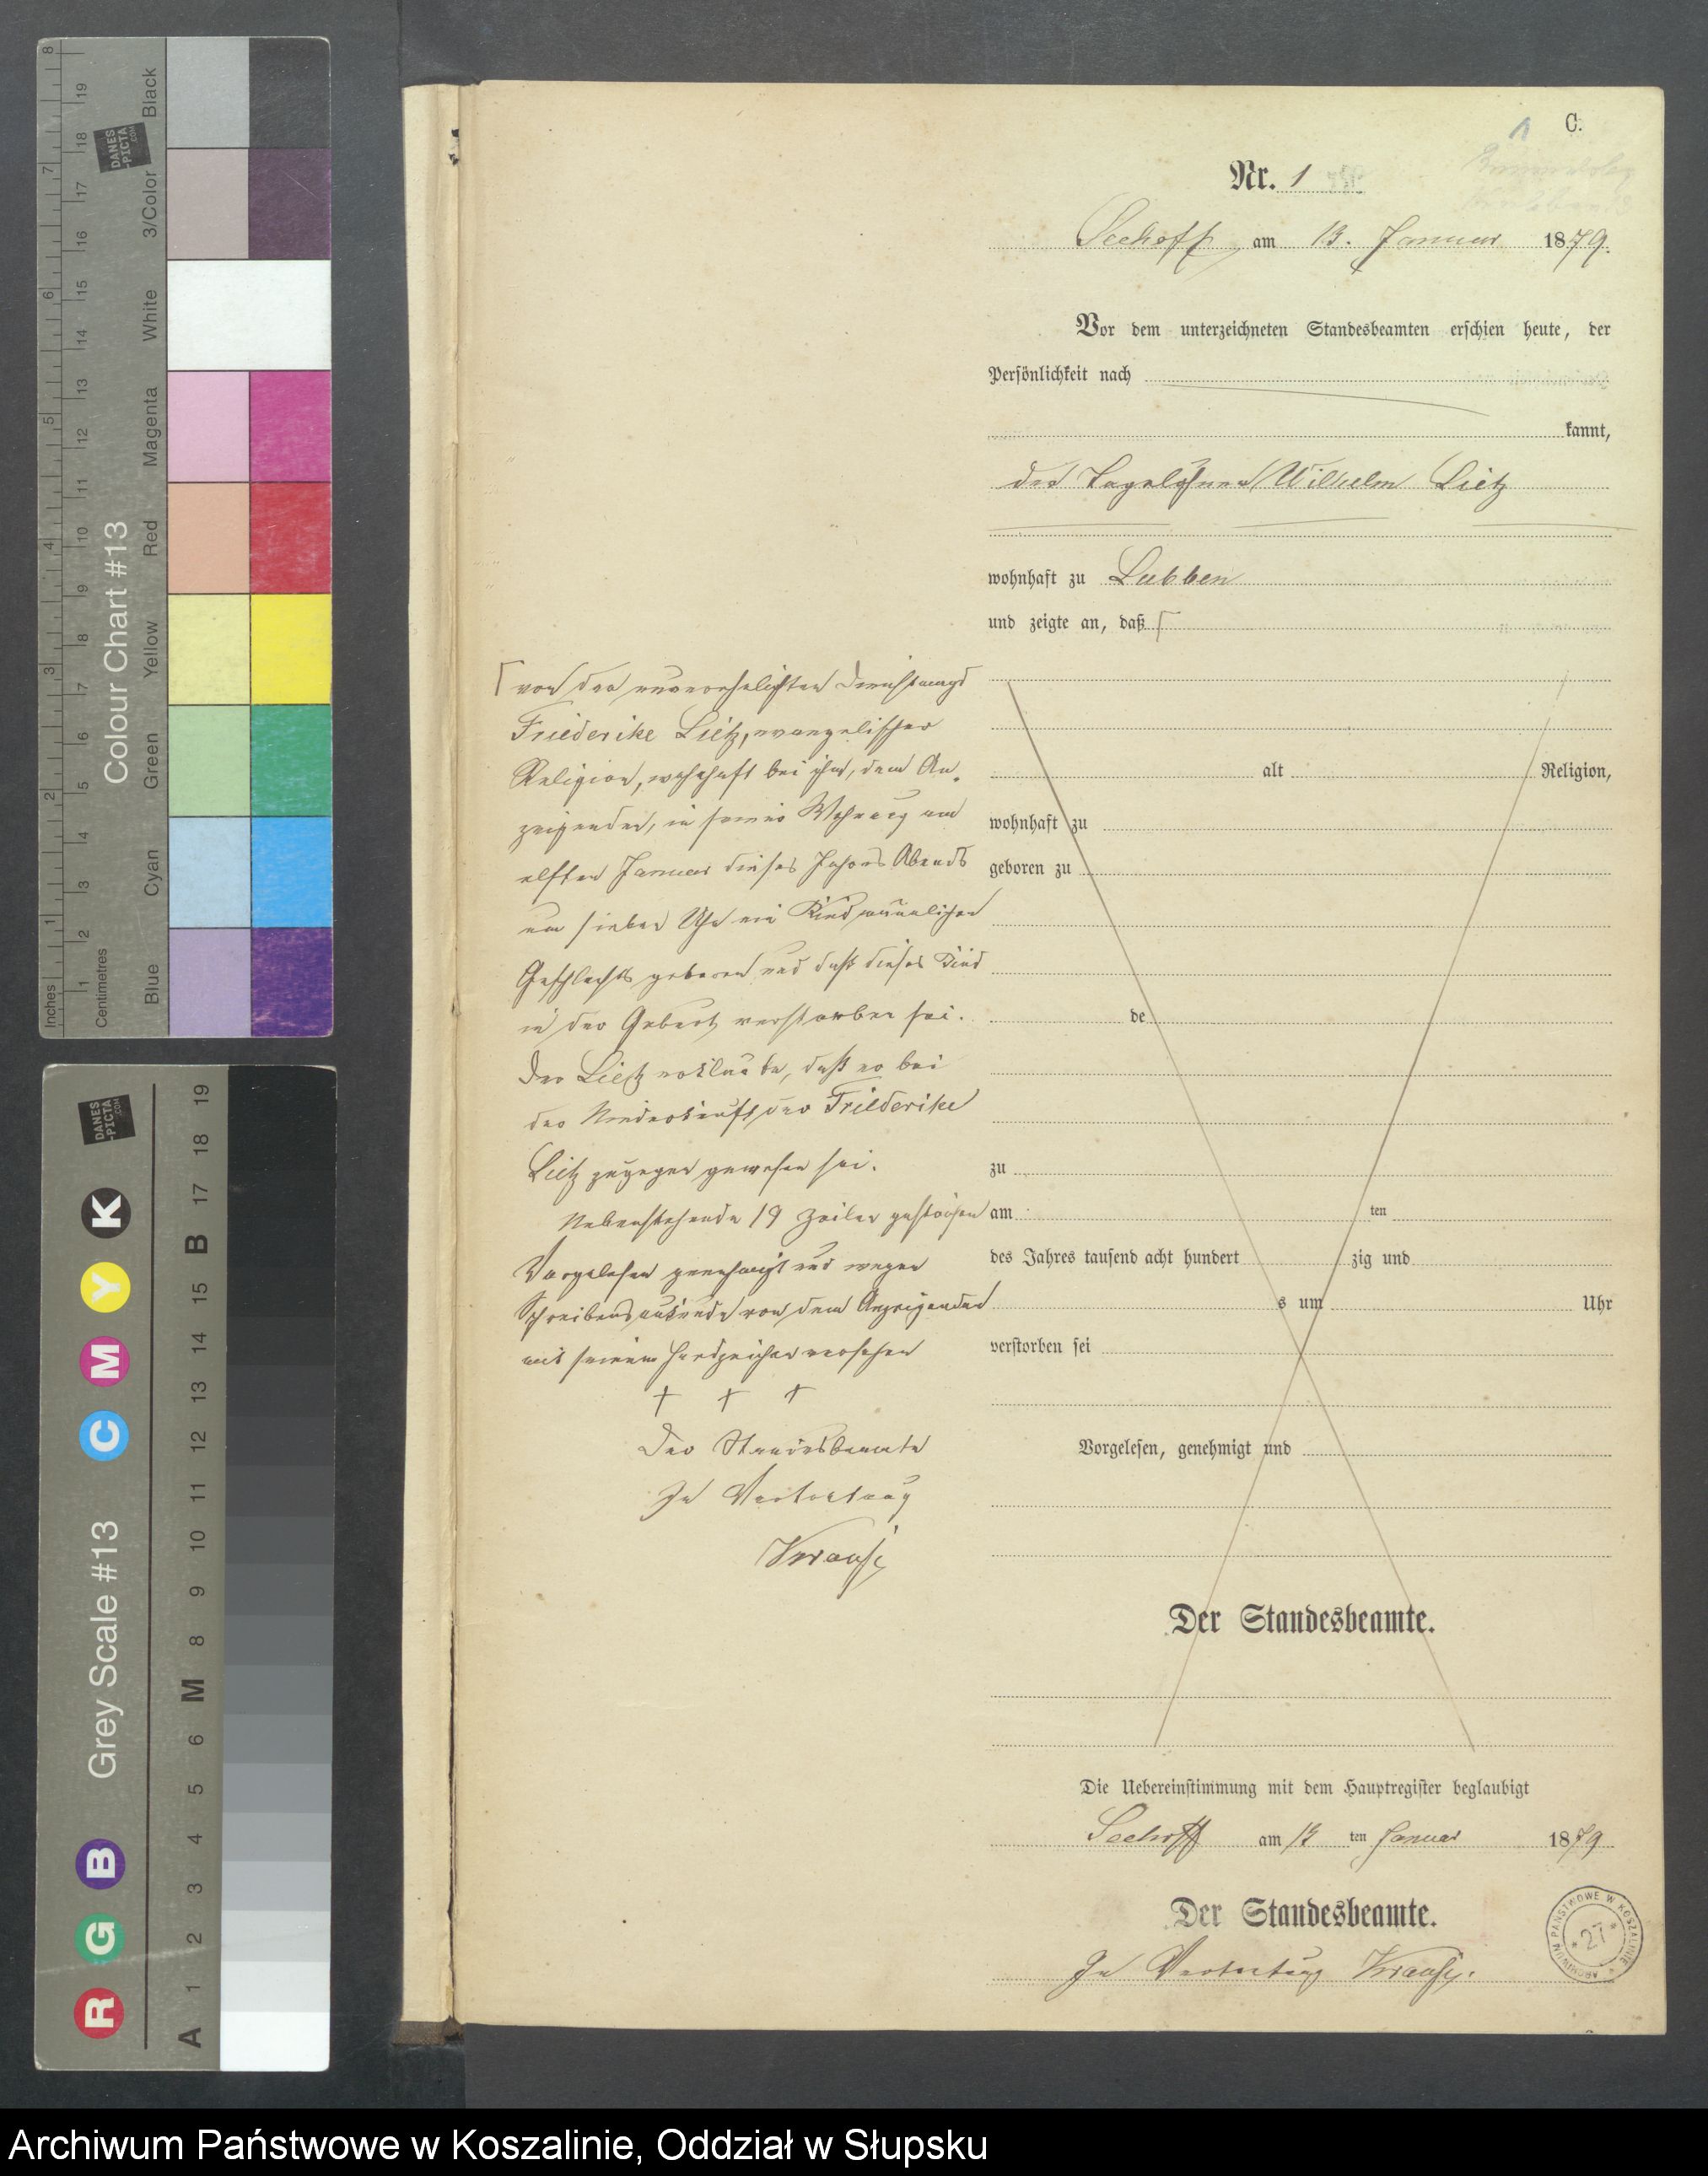 C.
1
Nr. 1
Seehoff, am 13. Januar 1879.
Vor dem unterzeichneten Standesbeamten erschien heute, der
Persönlichkeit nach
kannt,
der Tagelöhner Wilhelm Lietz
wohnhaft zu Lubben
und zeigte an, daß ⌈
⌈ von der unverehelichten Dienstmagd
Friederike Lietz, evangelischer
Religion, wohnhaft bei ihm, dem An-
zeigenden, in seiner Wohnung am
elften Januar dieses Jahres Abends
um sieben Uhr ein Kind männlichen
Geschlechts geboren und daß dieses Kind
in der Geburt verstorben sei.
Der Lietz erklärte, daß er bei
der Niederkunft der Friederike
Lietz zugegen gewesen sei.
Nebenstehende 19 Zeilen gestrichen
Vorgelesen genehmigt und wegen
Schreibensunkunde von dem Anzeigenden
mit seinem Handzeichen versehen
+ + +
Der Standesbeamte
In Vertretung
Krause
alt Religion,
wohnhaft zu
geboren zu
de
zu
am ten
des Jahres tausend acht hundert zig und
s um Uhr
verstorben sei
Vorgelesen, genehmigt und
Der Standesbeamte.
Die Uebereinstimmung mit dem Hauptregister beglaubigt
Seehoff am 13 ten Januar 1879
Der Standesbeamte.
In Vertretung Krause.
ARCHIWUM PAŃSTWOWE W KOSZALINIE
* 27 *
Colour Chart #13
Blue Cyan Green Yellow Red Magenta White 3/Color Black
Inches 1 2 3 4 5 6 7 8
Centimetres 1 2 3 4 5 6 7 8 9 10 11 12 13 14 15 16 17 18 19
DANES-PICTA.COM
Grey Scale #13
R G B C M Y K
A 1 2 3 4 5 6 M 8 9 10 11 12 13 14 15 B 17 18 19
DANES-PICTA.COM
Archiwum Państwowe w Koszalinie, Oddział w Słupsku